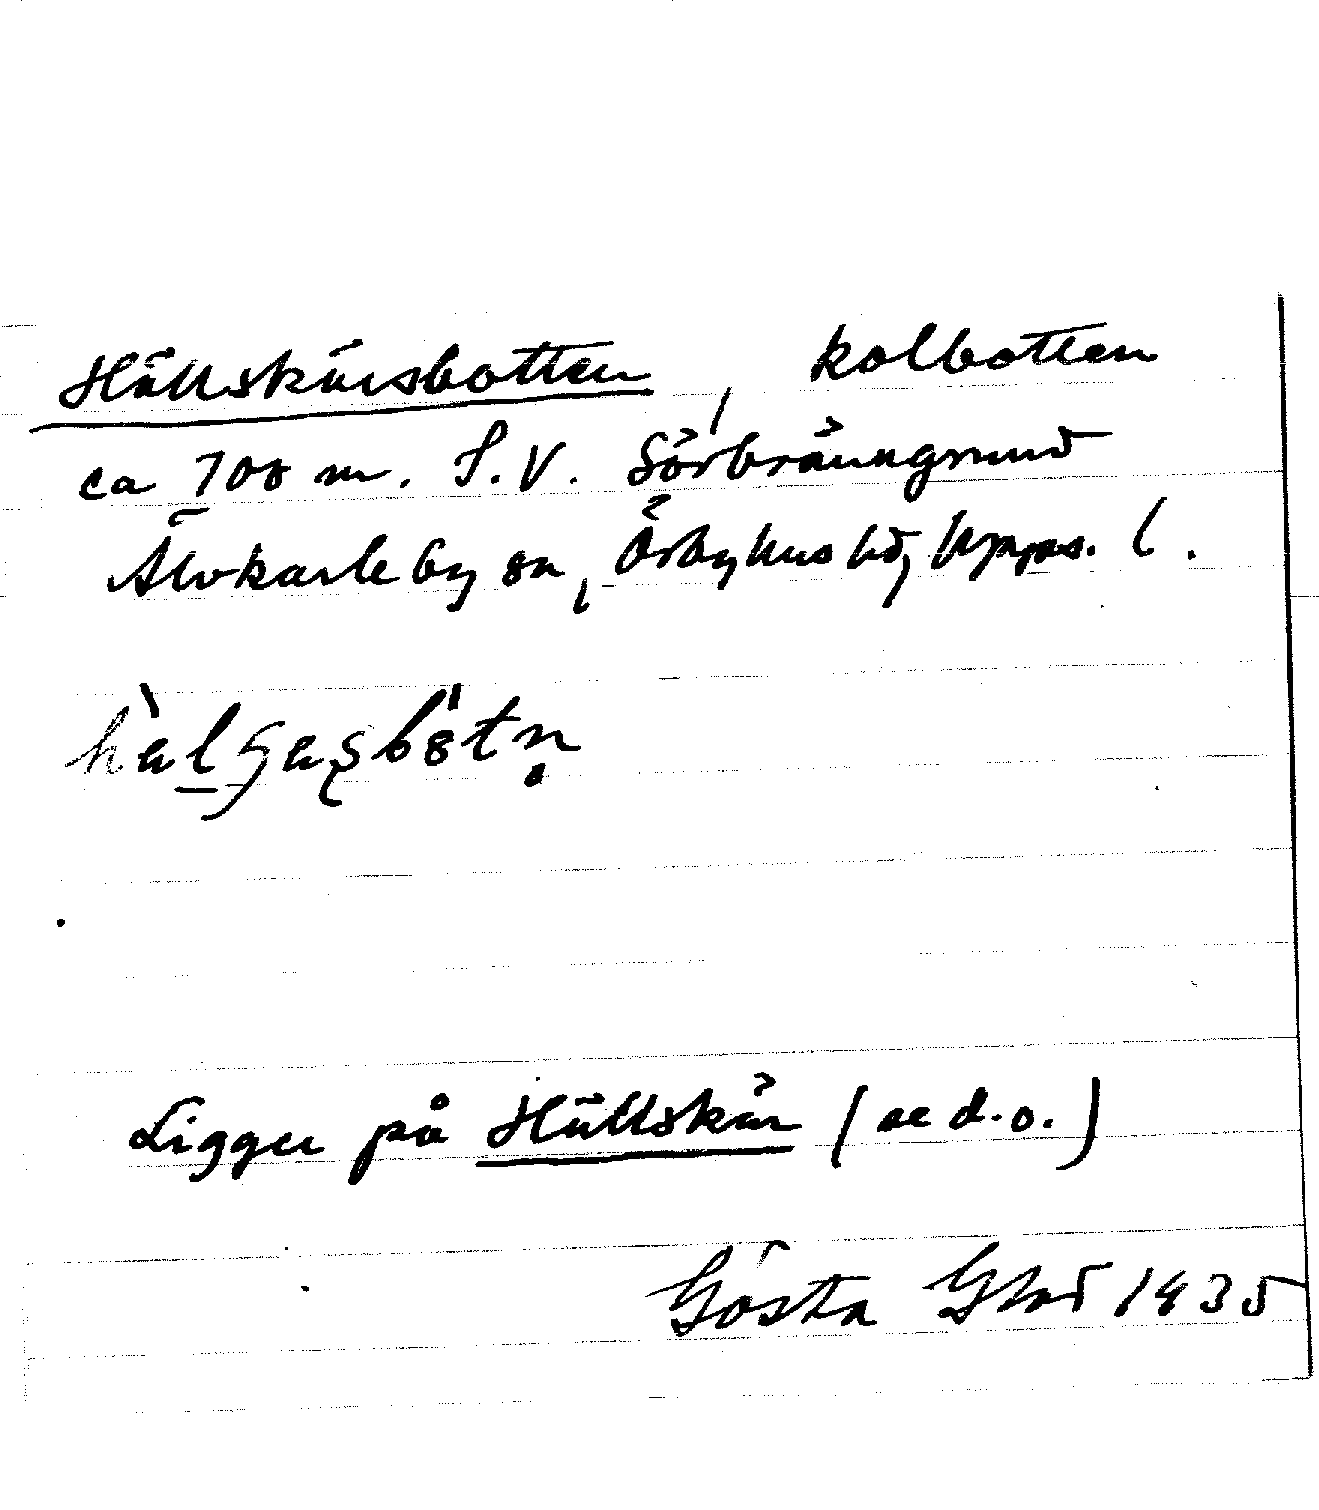 Hällskärsbotten, kolbotten
ca 700 m. S.V. Sörbränngrund
Älvkarleby sn, Örbyhus hd, Upps. l.
Ligger på Hällskär (se d.o.)
Gösta 1935